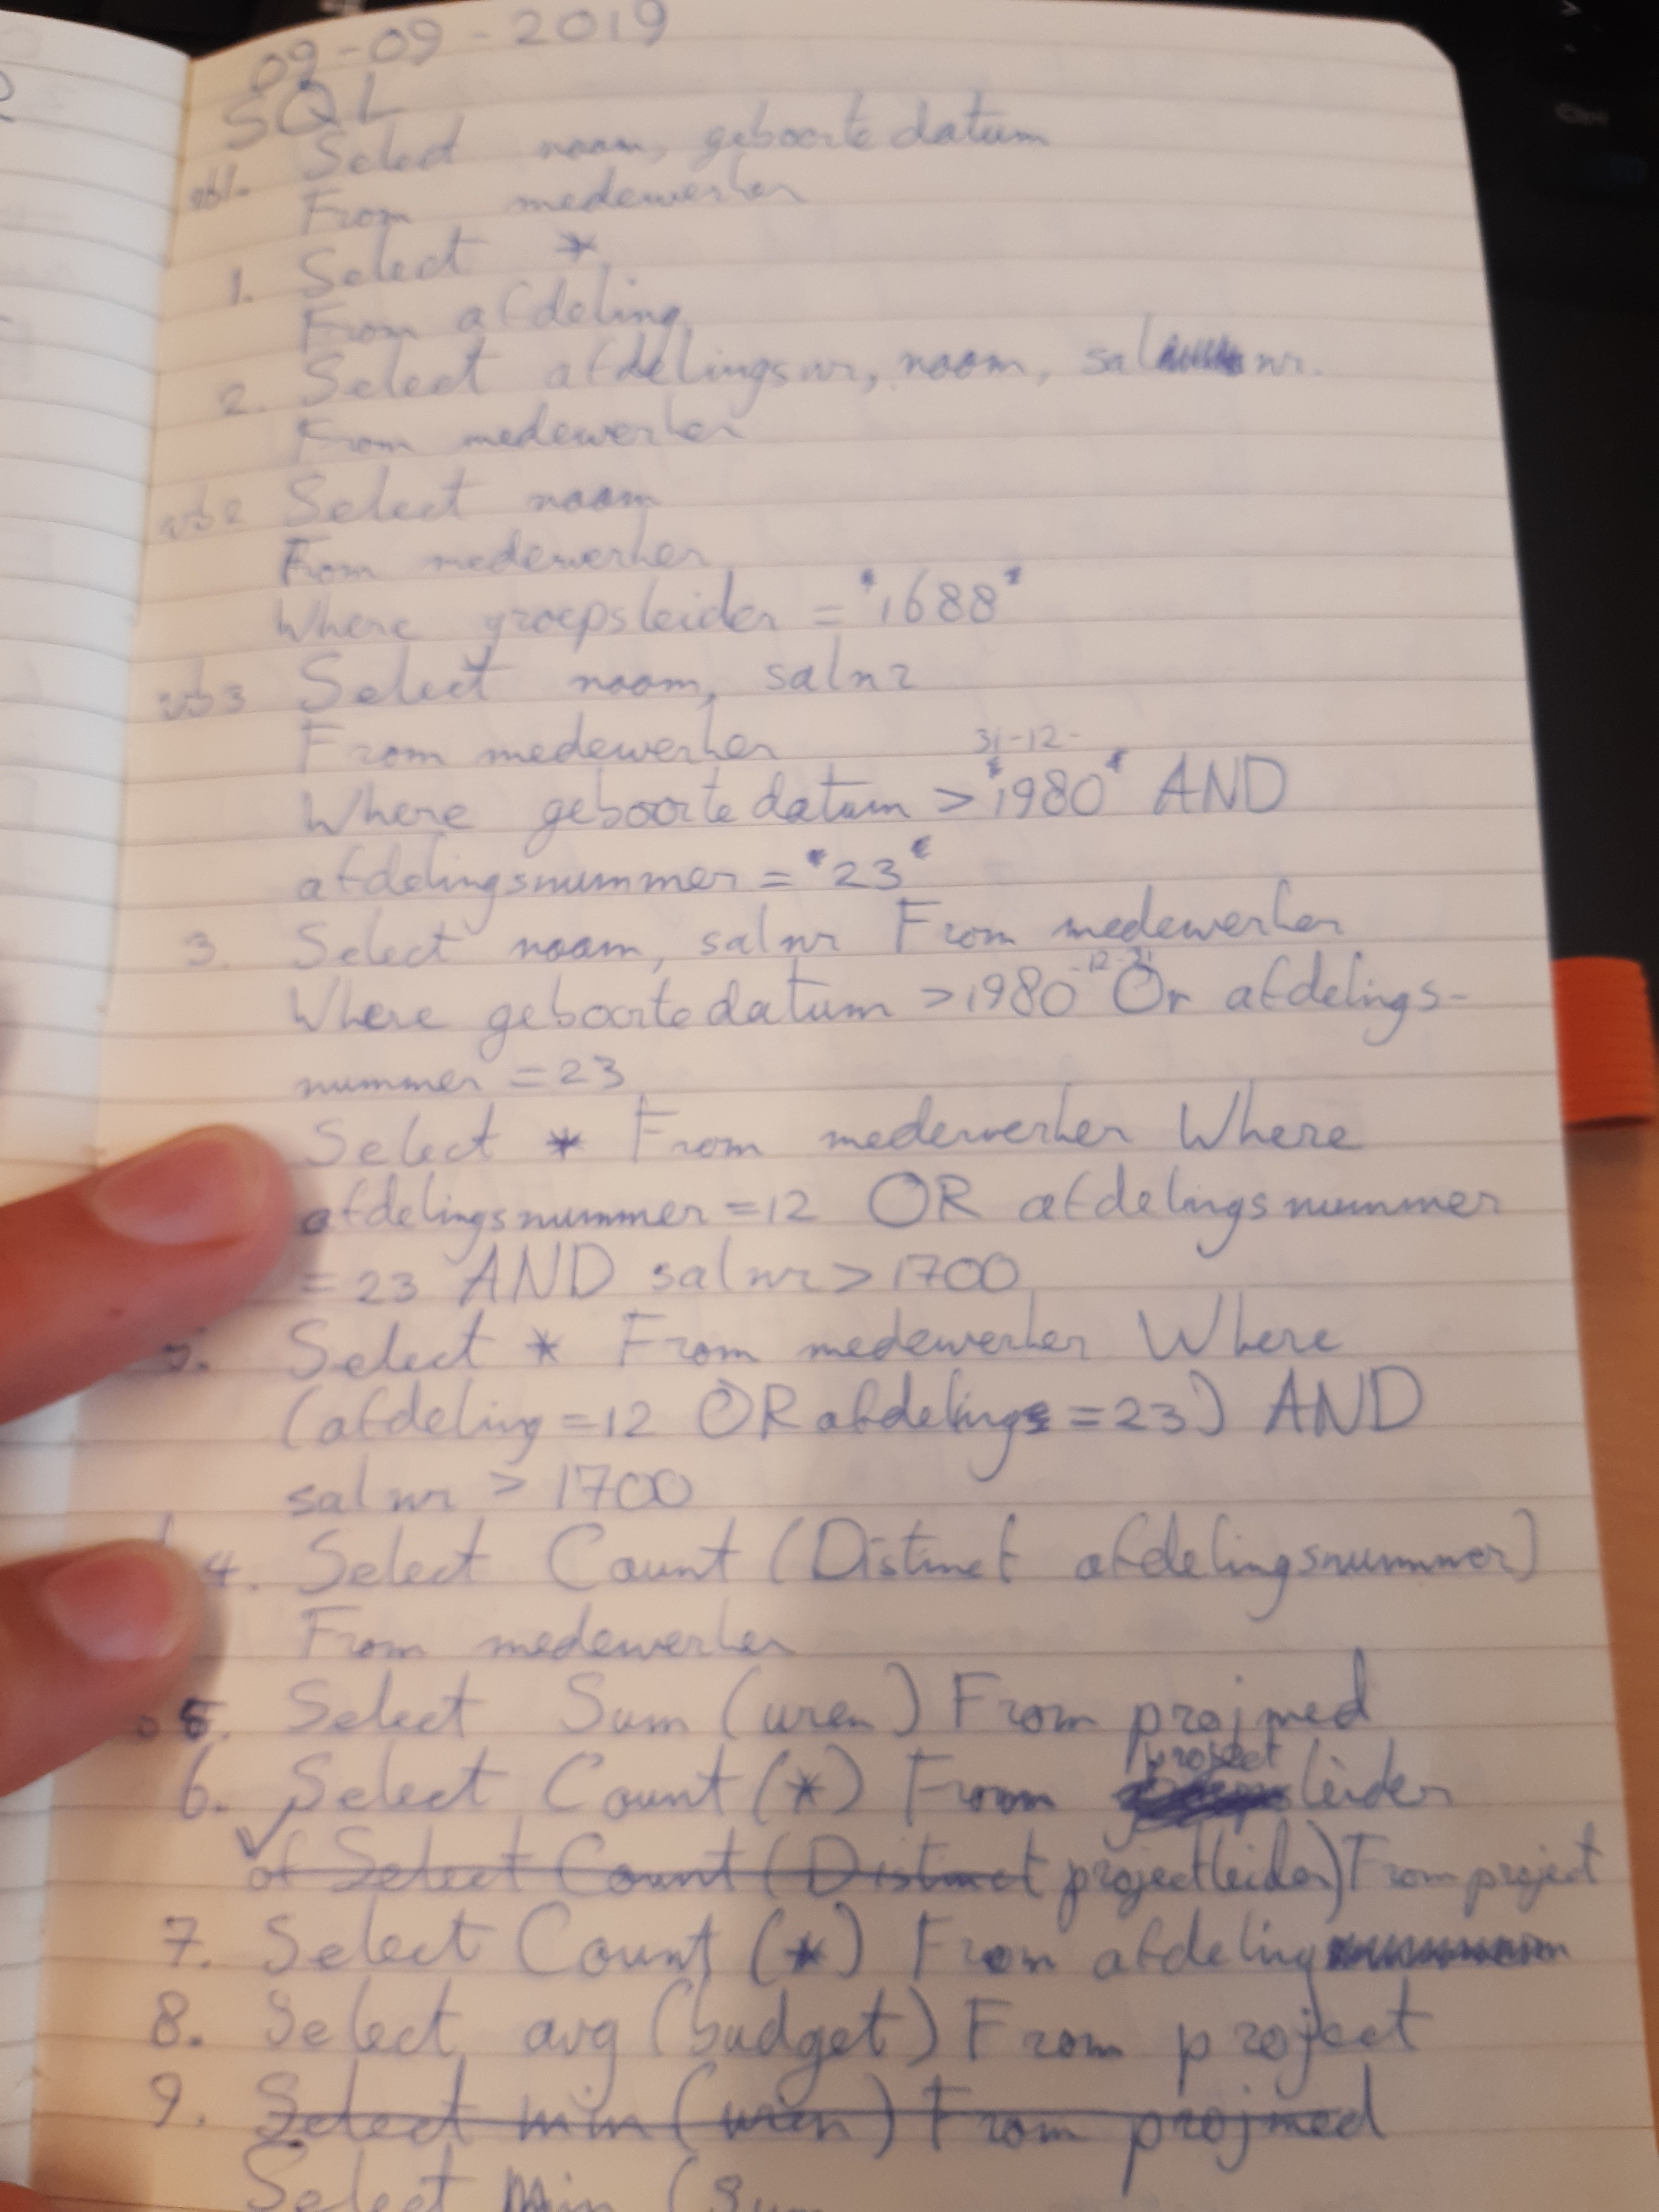 09-09-2019
SQL
vb1. Select naam, geboortedatum
From medewerker
1. Select *
From afdeling
2. Select afdelingsnr, naam, salnr.
From medewerker
vb2 Select naam
From medewerker
Where groepsleider = '1688'
vb3 Select naam, salnr
From medewerker
31-12-
Where geboortedatum > '1980' AND
afdelingsnummer = '23'
3. Select naam, salnr From medewerker
Where geboortedatum > 1980-12-31 Or afdelings-
nummer = 23
Select * From medewerker Where
afdelingsnummer = 12 OR afdelingsnummer
= 23 AND salnr > 1700
5. Select * From medewerker Where
(afdeling = 12 OR afdeling = 23) AND
salnr > 1700
4. Select Count (Distinct afdelingsnummer)
From medewerker
5. Select Sum (uren) From projmed
6. Select Count (*) From projectleider
of Select Count (Distinct projectleider) From project
7. Select Count (*) From afdeling
8. Select avg (budget) From project
9. Select min (uren) From projmed
Select Min (Sum